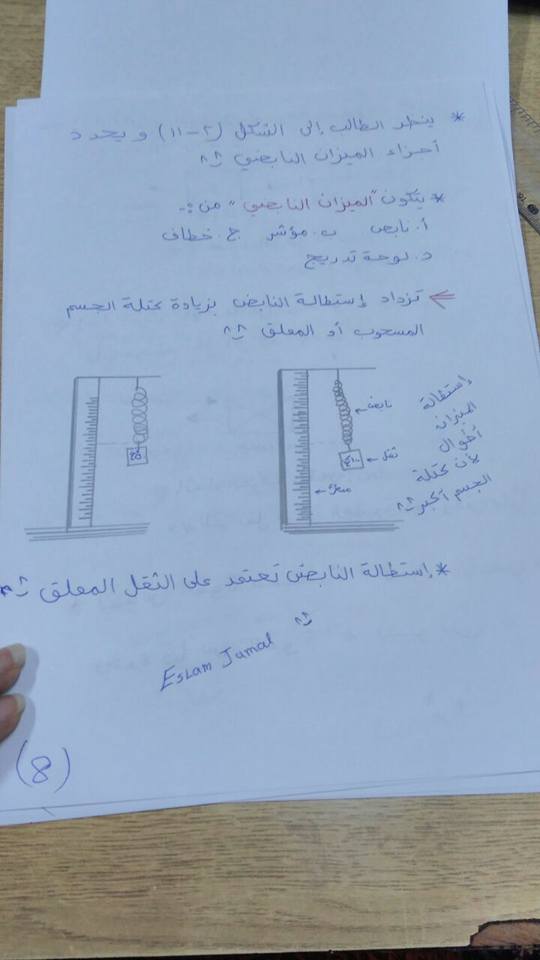 * ينظر الطالب إلى الشكل (٢-١١) ويحدد
أجزاء الميزان النابضي ^^
* يتكون "الميزان النابضي" من :-
أ. نابض ب. مؤشر ج. خطاف
د. لوحة تدريج
تزداد إستطالة النابض بزيادة كتلة الجسم
المسحوب أو المعلق ^^
نابض
ثقل
إستطالة
الميزان
أطول
لأن كتلة
الجسم أكبر ^^
* إستطالة النابض تعتمد على الثقل المعلق ^^
Eslam Jamal ^^
(8)